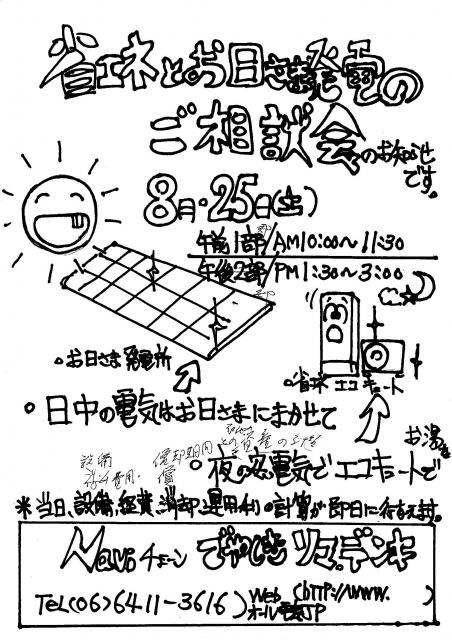 省エネとお日さま発電の
ご相談会のお知らせ
です。
8月・25日(土)
午前1部/AM10:00〜11:30
午後2部/PM1:30〜3:00
。お日さま発電所
。省エネ エコキュート
。日中の電気はお日さまにまかせて
設備
償却期間
償
お湯を
。夜の 電気でエコキュートで
※当日、設備、経費、消却、運用利 の計算が即日に行なえます。
チェーン でやしき リマ.デンキ
TEL(06)6411-3616)
Web (http://www. )
オール電気JP